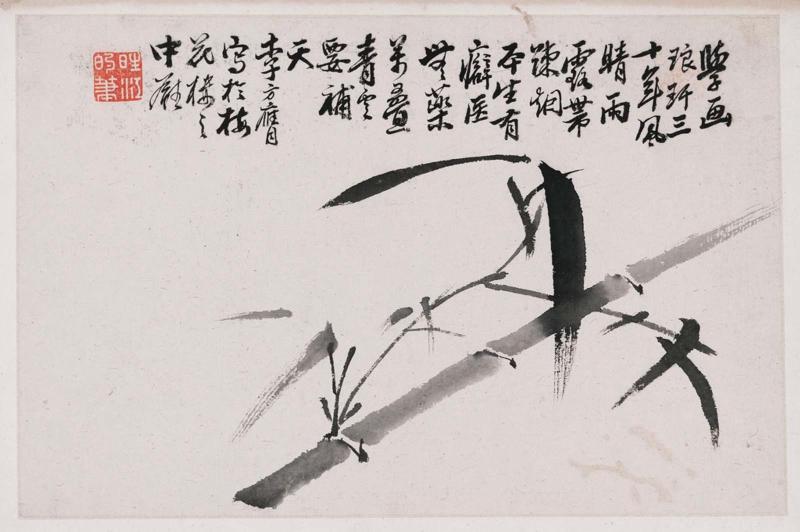 學画
琅玕三
十年風
晴雨
露帶
疎烟
平生有
癖医
無藥
萬疊
青雲
要補
天
李方膺
寫於梅
花樓之
中
晴江
的筆